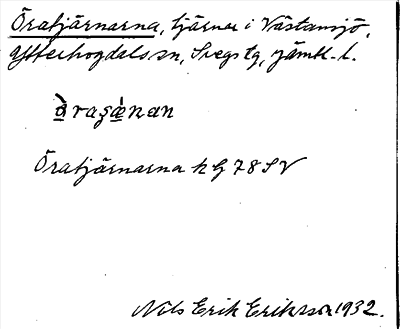 Öratjärnarna, tjärnar i Västansjö,
Ytterhogdals sn, Svegs tg, Jämtl. l.
òraşæ̀nan
Öratjärnarna kg 78 SV
Nils Erik Eriksson 1932.